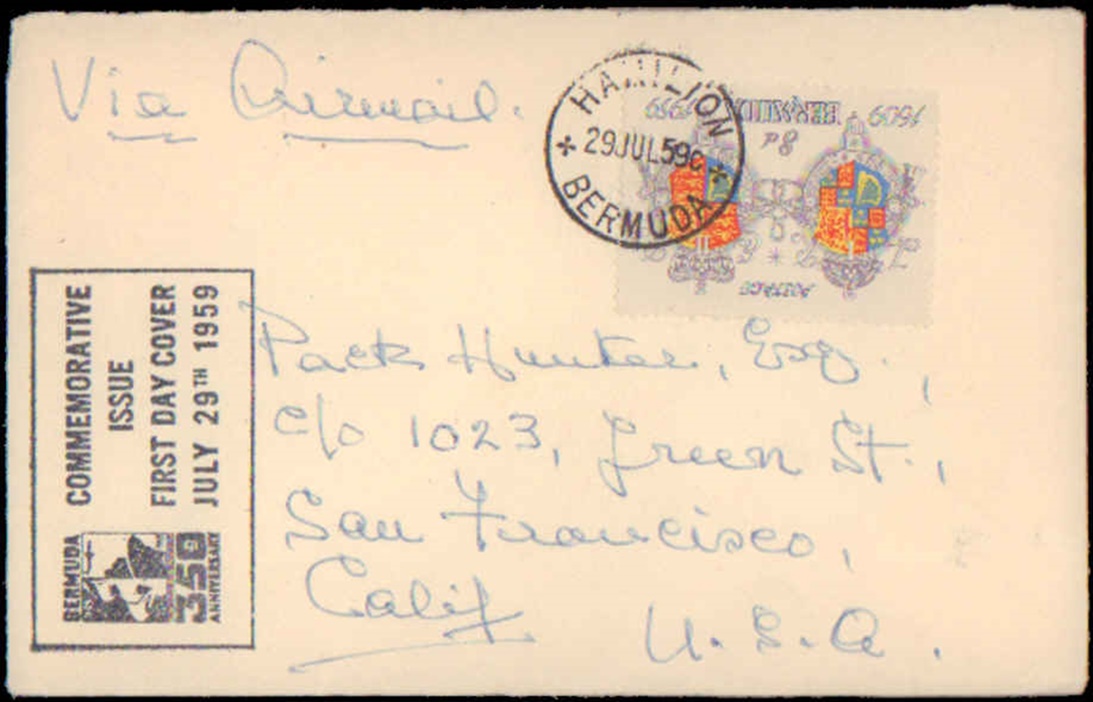 Via Airmail.
HAMILTON
29 JUL 59 C
BERMUDA
1609 BERMUDA 1959
8d
POSTAGE
COMMEMORATIVE
ISSUE
FIRST DAY COVER
JULY 29TH 1959
BERMUDA
350
ANNIVERSARY
Pack Hunter, Esq.,
c/o 1023, Green St.,
San Francisco,
Calif
U.S.A.